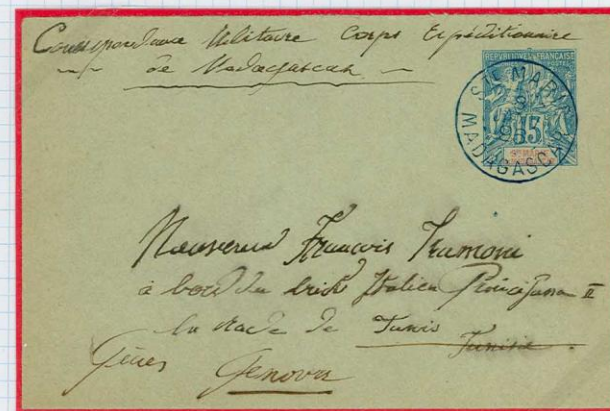 Correspondance Militaire Corps Expéditionnaire
de Madagascar
REPUBLIQUE FRANCAISE
STE MARIE
15
MADAGASCAR
Monsieur Francois Tramoni
à bord du brick Italien II
la rade de Tunis
Tunisie.
Gênes Genova